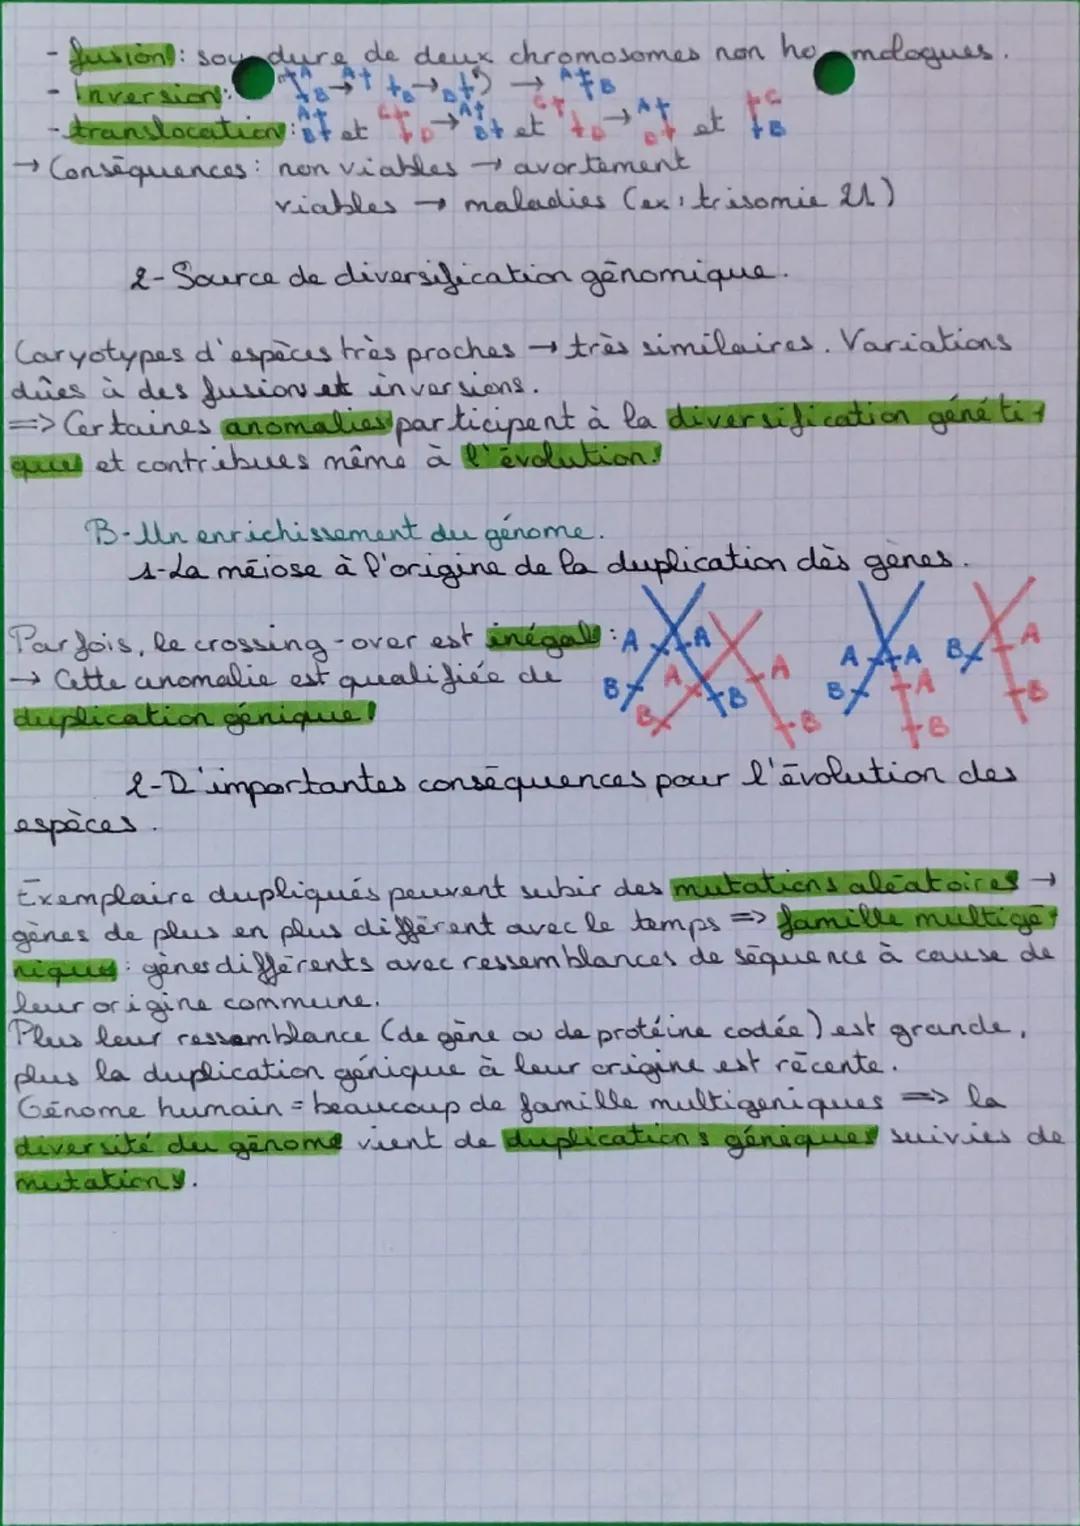 - fusion : soudure de deux chromosomes non homologues.
- Inversion : A B → A B → B → A B
- translocation : A B et C D → A B et C D → A D et C B
→ Conséquences : non viables → avortement
viables → maladies (ex : trisomie 21)
2- Source de diversification génomique.
Caryotypes d'espèces très proches → très similaires. Variations
dûes à des fusion et inversions.
=> Certaines anomalies participent à la diversification généti-
que et contribues même à l'évolution.
B- Un enrichissement du génome.
1- La méiose à l'origine de la duplication dès gènes.
Parfois, le crossing-over est inégal : A A B A B A B B A A B A B A B
→ Cette anomalie est qualifiée de
duplication génique !
2- D'importantes conséquences pour l'évolution des
espèces.
Exemplaire dupliqués peuvent subir des mutations aléatoires →
gènes de plus en plus différent avec le temps => famille multigé-
nique : gènes différents avec ressemblances de séquence à cause de
leur origine commune.
Plus leur ressemblance (de gène ou de protéine codée) est grande,
plus la duplication génique à leur origine est récente.
Génome humain = beaucoup de famille multigeniques => la
diversité du génome vient de duplications géniques suivies de
mutations.